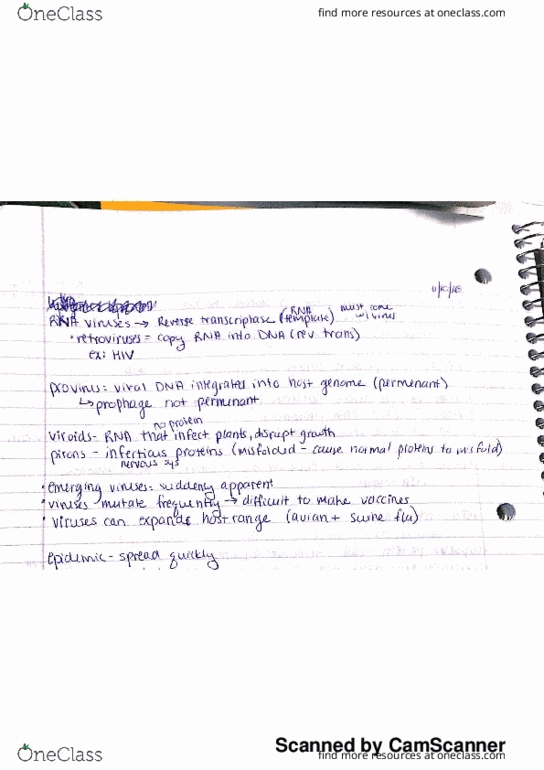 OneClass
find more resources at oneclass.com
RNA viruses → Reverse transcriptase (RNA template) must come w/ virus
• retroviruses = copy RNA into DNA (rev trans)
ex: HIV
provirus: viral DNA integrates into host genome (permenant)
↳ prophage not permenant
viroids- RNA that infect plants, disrupt growth
no protein
pirons - infectious proteins (misfolded - cause normal proteins to misfold)
nervous sys
• emerging viruses: suddenly apparent
• viruses mutate frequently → difficult to make vaccines
• viruses can expand host range (avian + swine flu)
epidemic - spread quickly
Scanned by CamScanner
OneClass
find more resources at oneclass.com